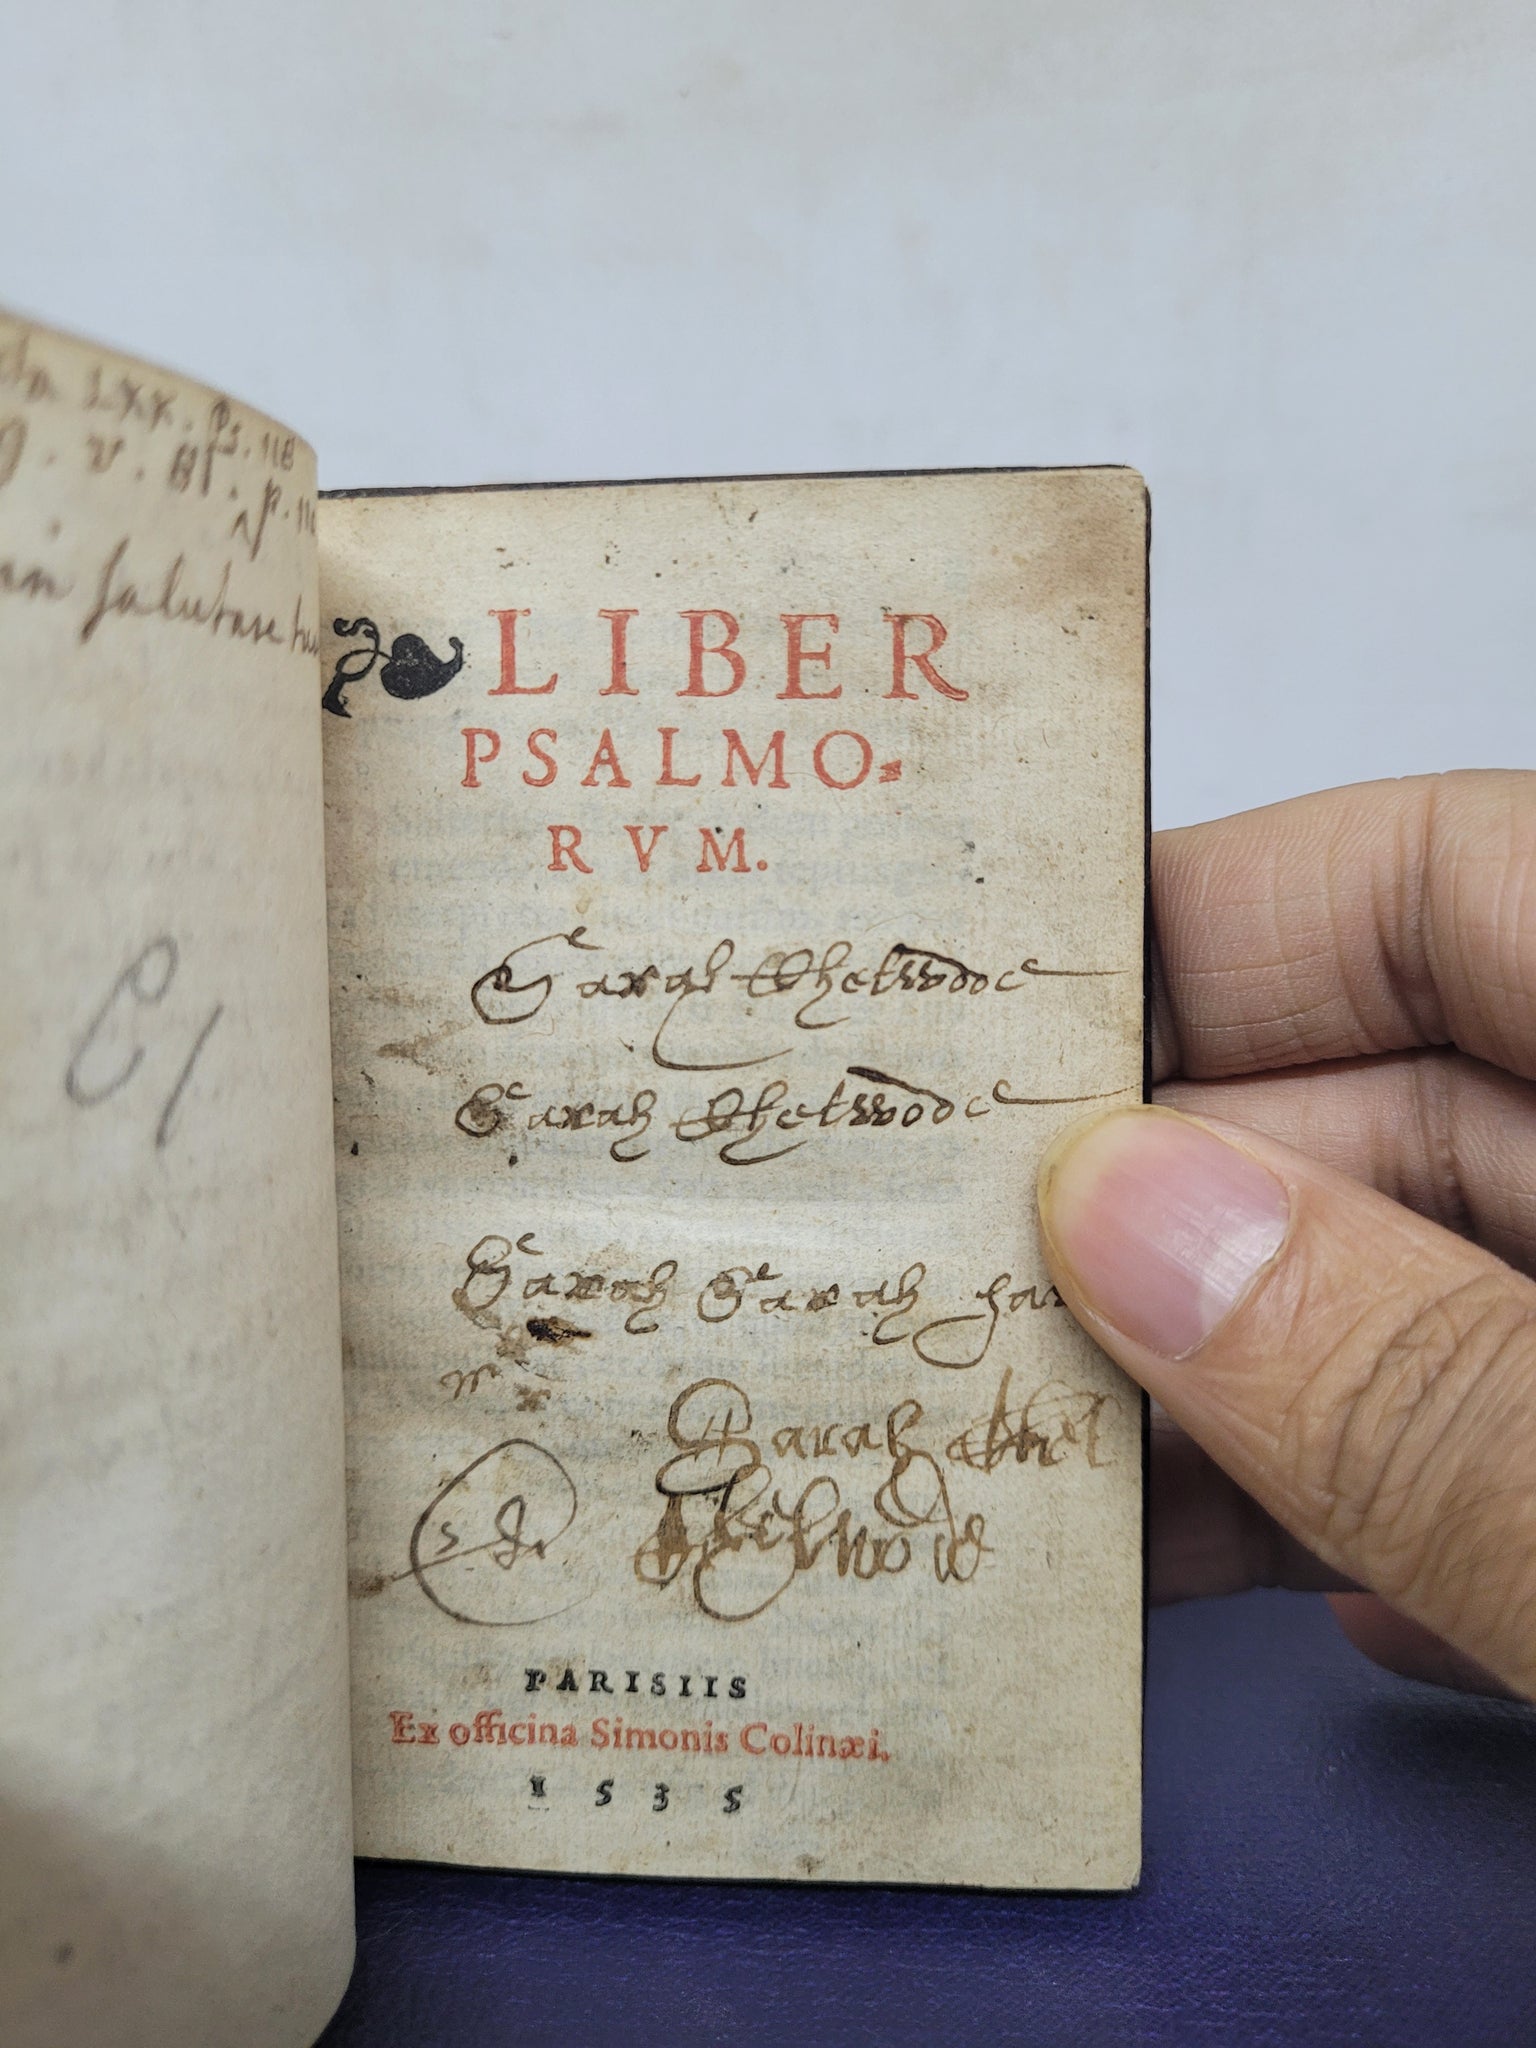 LXX. Ps. 118
in salutare
LIBER
PSALMO⸗
RVM.
Sarah Chetwode
Sarah Chetwode
Sarah Sarah
Sarah Chet
Chetwode
PARISIIS
Ex officina Simonis Colinæi.
1535